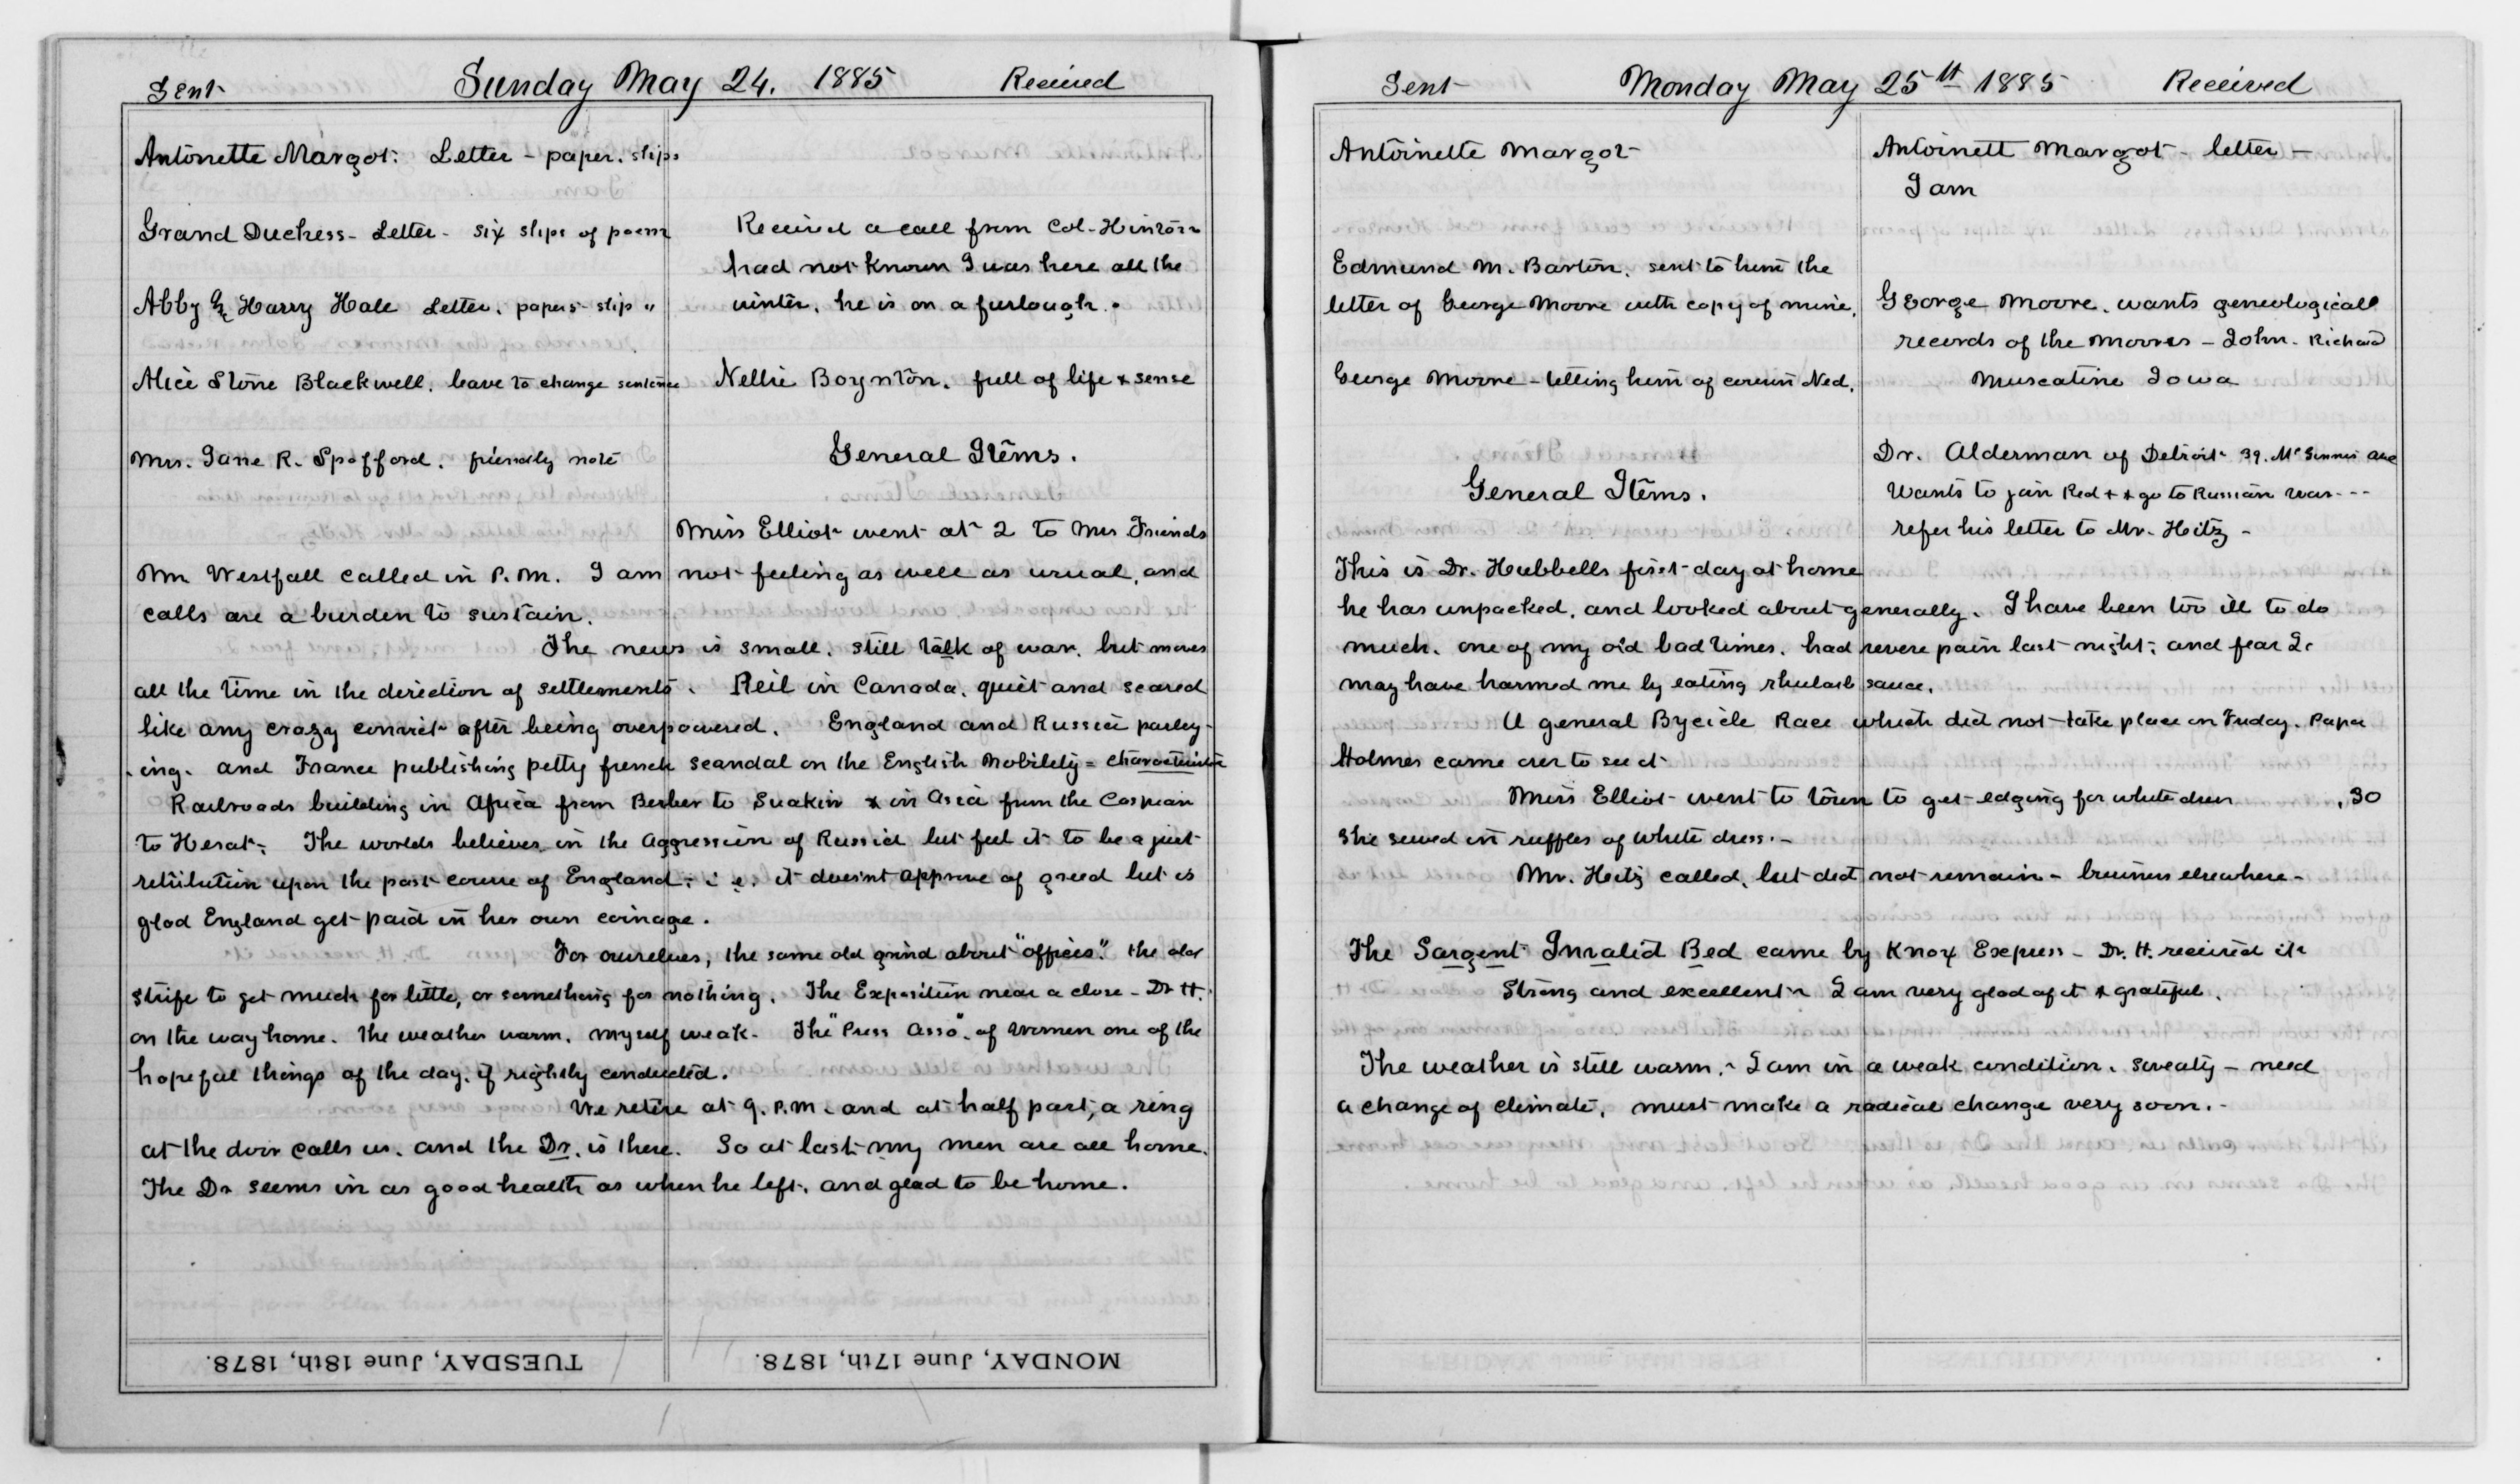 Sent Sunday May 24. 1885 Received
Antoinette Margot. Letter - paper. slips
Grand Duchess - Letter - six slips of poem
Abby & Harry Hale Letter. papers - slip "
Alice Stone Blackwell. leave to change sentence
Mrs. Jane R. Spofford. friendly note
Received a call from Col. Hinton
had not known I was here all the
winter. he is on a furlough.
Nellie Boynton. full of life & sense
General Items.
Miss Elliot went at 2 to Mrs Friends
Wm Westfall called in P.M. I am not feeling as well as usual, and
calls are a burden to sustain.
The news is small. still talk of war. but moves
all the time in the direction of settlements. Reil in Canada. quiet and scared
like any crazy convict after being overpowered. England and Russia parley-
ing. and France publishing petty french scandal on the English Nobility = characteristic
Railroads building in Africa from Berber to Suakin & in Asia from the Caspian
to Herat. The worlds believes in the Aggression of Russia but feel it to be a just
retribution upon the past course of England; i.e. it doesn't approve of greed but is
glad England get paid in her own coinage.
For ourselves, the same old grind about "offices". the old
strife to get much for little, or something for nothing. The Exposition near a close - Dr H.
on the way home. the weather warm. myself weak. The "Press Asso". of Women one of the
hopeful things of the day. if rightly conducted.
We retire at 9. P.M. and at half past, a ring
at the door calls us. and the Dr. is there. So at last my men are all home.
The Dr seems in as good health as when he left. and glad to be home.
TUESDAY, June 18th, 1878.
MONDAY, June 17th, 1878.
Sent Monday May 25th 1885 Received
Antoinette Margot
Edmund M. Barton. sent to him the
letter of George Moore with copy of mine.
George Moore - telling him of cousin Ned.
Antoinett Margot - letter -
I am
George Moore. wants geneologicall
records of the Moores - John - Richard
Muscatine Iowa
Dr. Alderman of Detroit 39. McGinnis ave
Wants to join Red + & go to Russian war ---
refer his letter to Mr. Heitz -
General Items.
This is Dr. Hubbells first day at home
he has unpacked. and looked about generally. I have been too ill to do
much. one of my old bad times. had severe pain last night; and fear I
may have harmed me by eating rhubarb sauce.
A general Bycicle Race which did not take place on Friday. Papa
Holmes came over to see it
Miss Elliot went to town to get edging for white dress .30
She sewed in ruffles of white dress. -
Mr. Heitz called, but did not remain - business elsewhere -
The Sargent Invalid Bed came by Knox Express - Dr. H. received it
Strong and excellent I am very glad of it & grateful.
The weather is still warm. - I am in a weak condition. sweaty - need
a change of climate, must make a radical change very soon. -